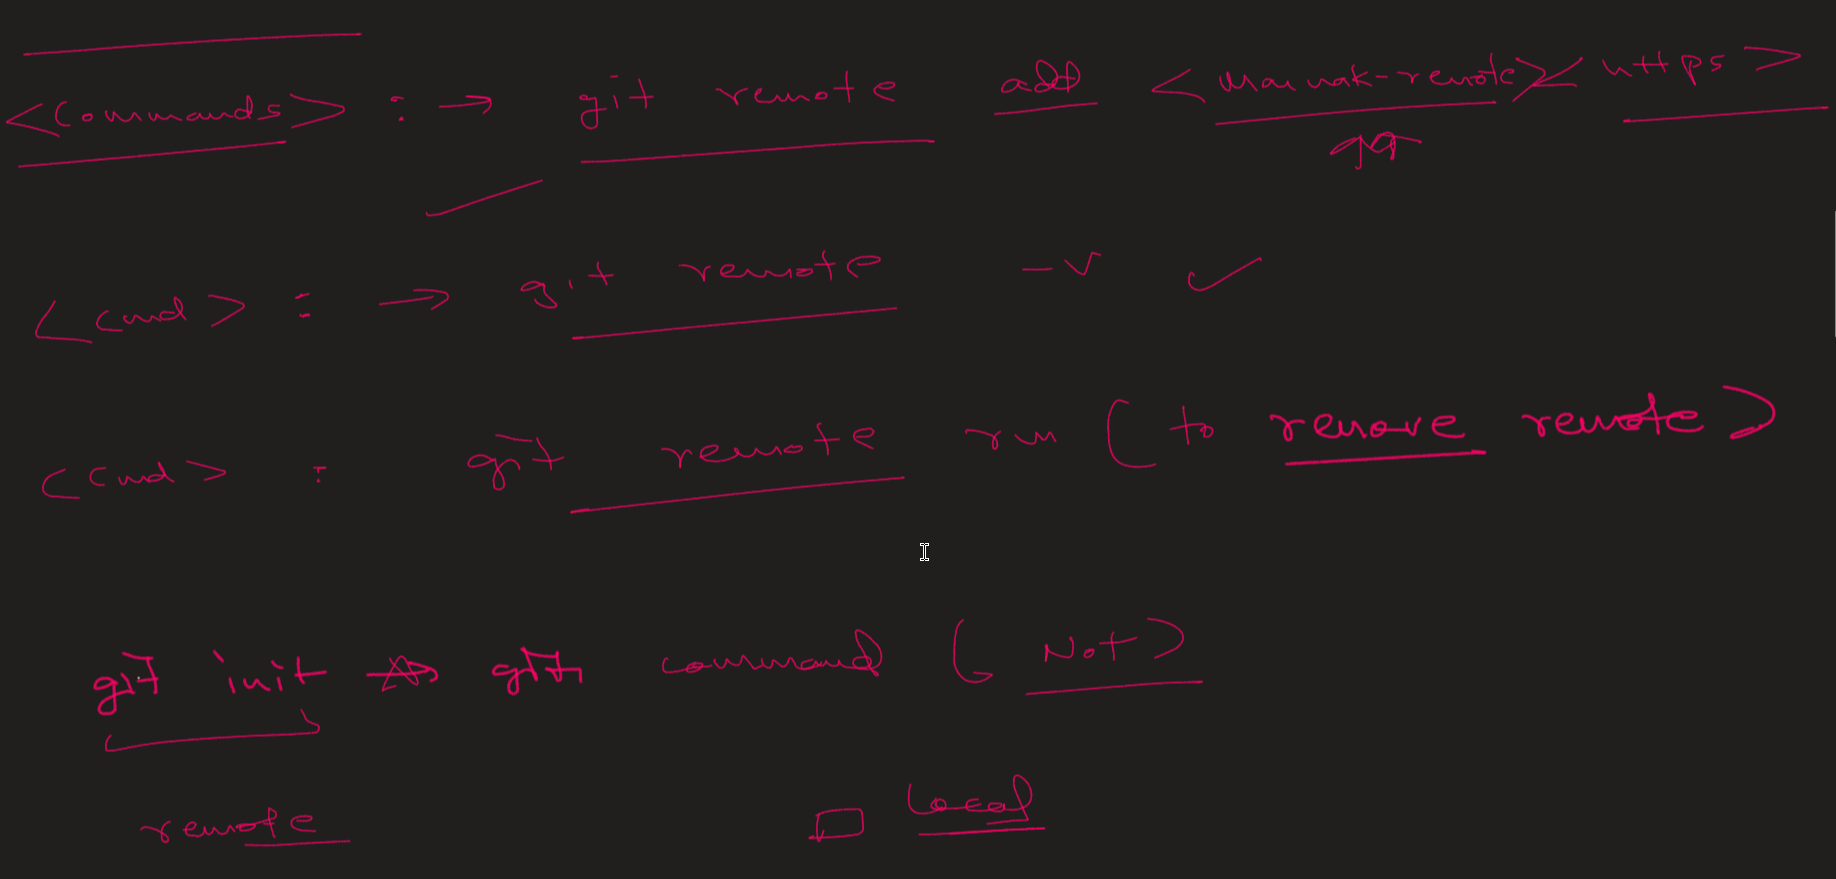 <commands> : → git remote add <mainak-remote> <https>
<cmd> : → git remote -v ✓
<cmd> : git remote rm (to remove remote)
git init → git command (Not)
remote local